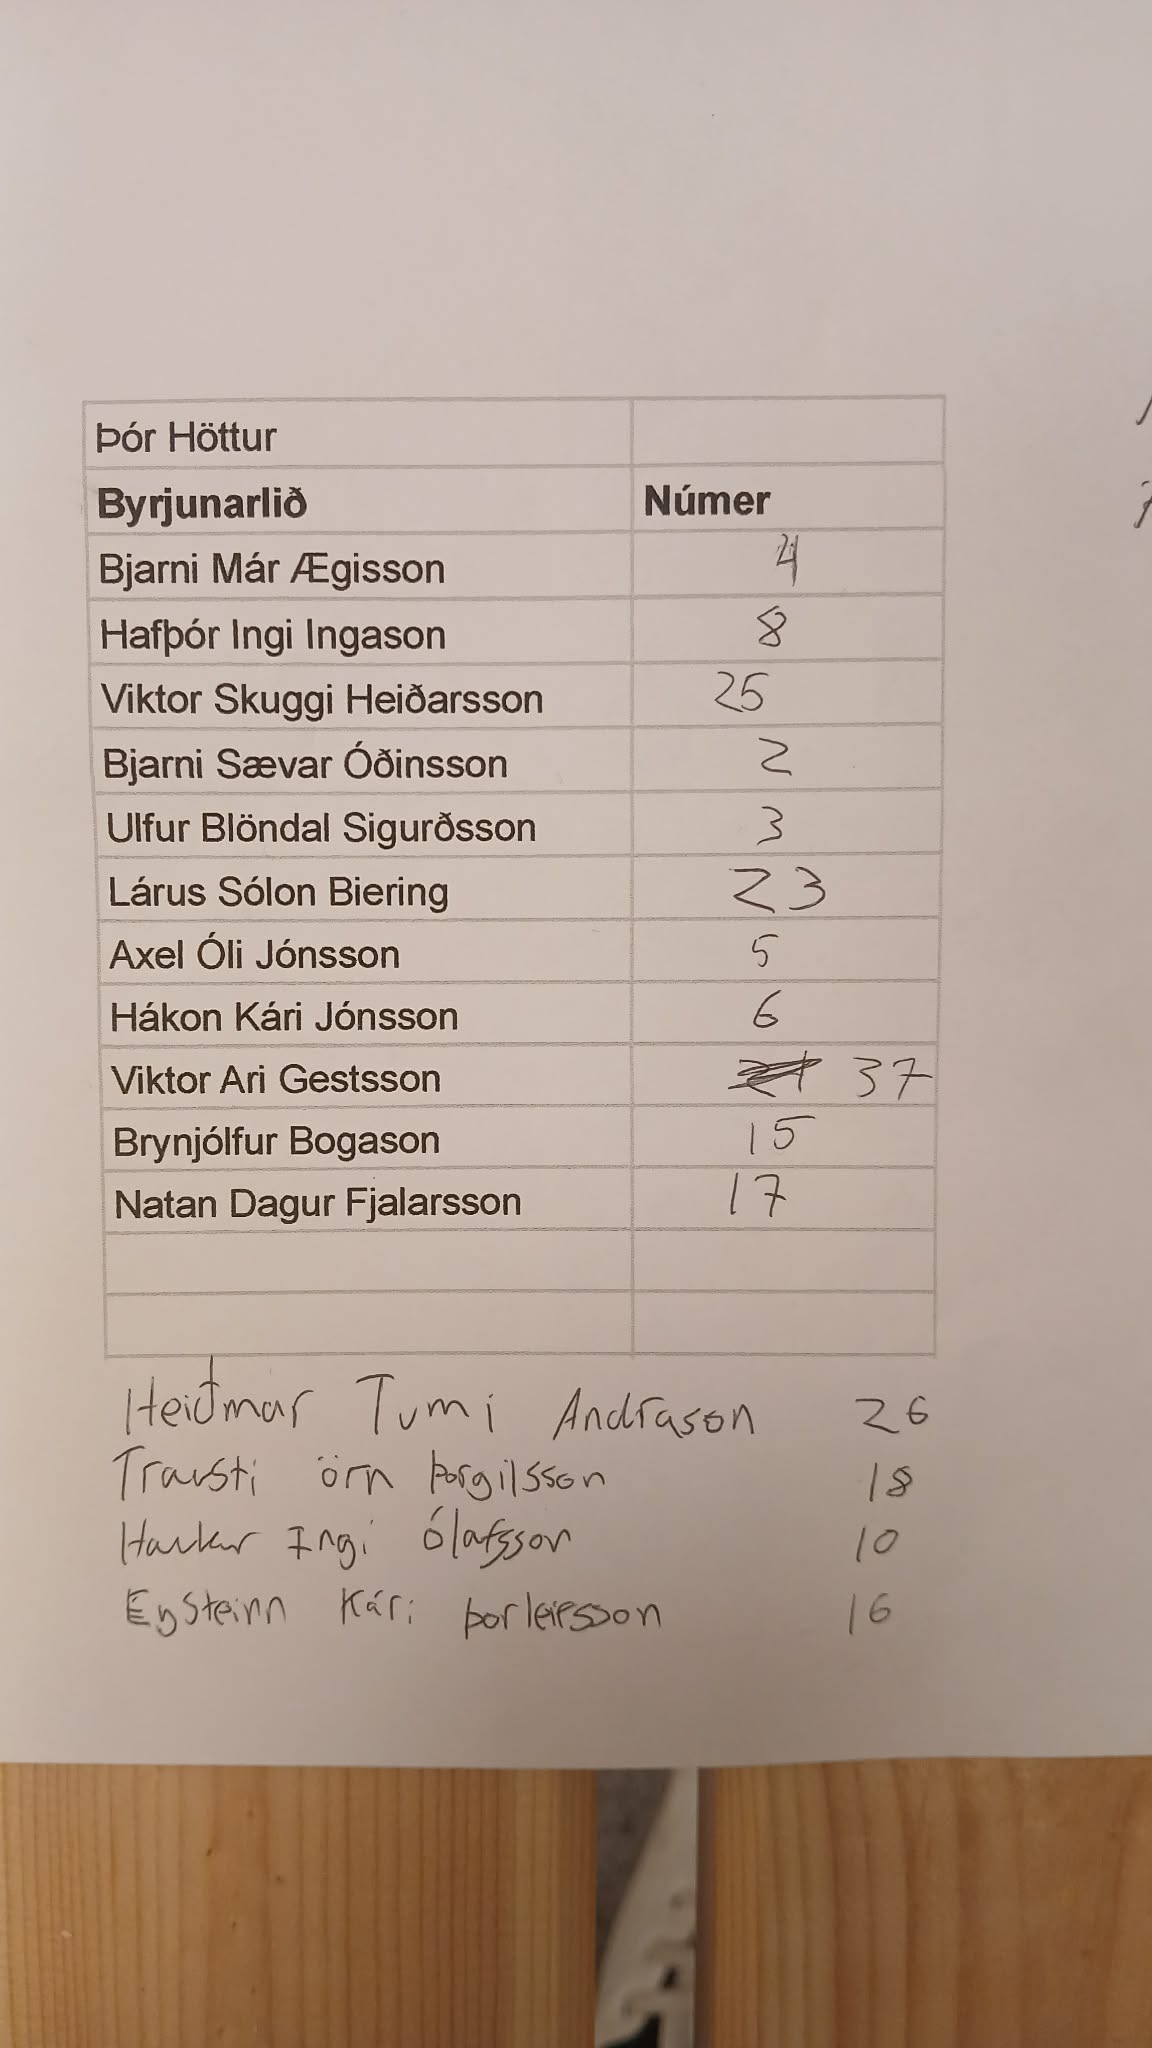 Þór Höttur
Byrjunarlið Númer
Bjarni Már Ægisson 4
Hafþór Ingi Ingason 8
Viktor Skuggi Heiðarsson 25
Bjarni Sævar Óðinsson 2
Ulfur Blöndal Sigurðsson 3
Lárus Sólon Biering 23
Axel Óli Jónsson 5
Hákon Kári Jónsson 6
Viktor Ari Gestsson 37
Brynjólfur Bogason 15
Natan Dagur Fjalarsson 17
Heiðmar Tumi Andrason 26
Trausti örn Þorgilsson 18
Haukur Ingi Ólafsson 10
Eysteinn Kári Þorleifsson 16